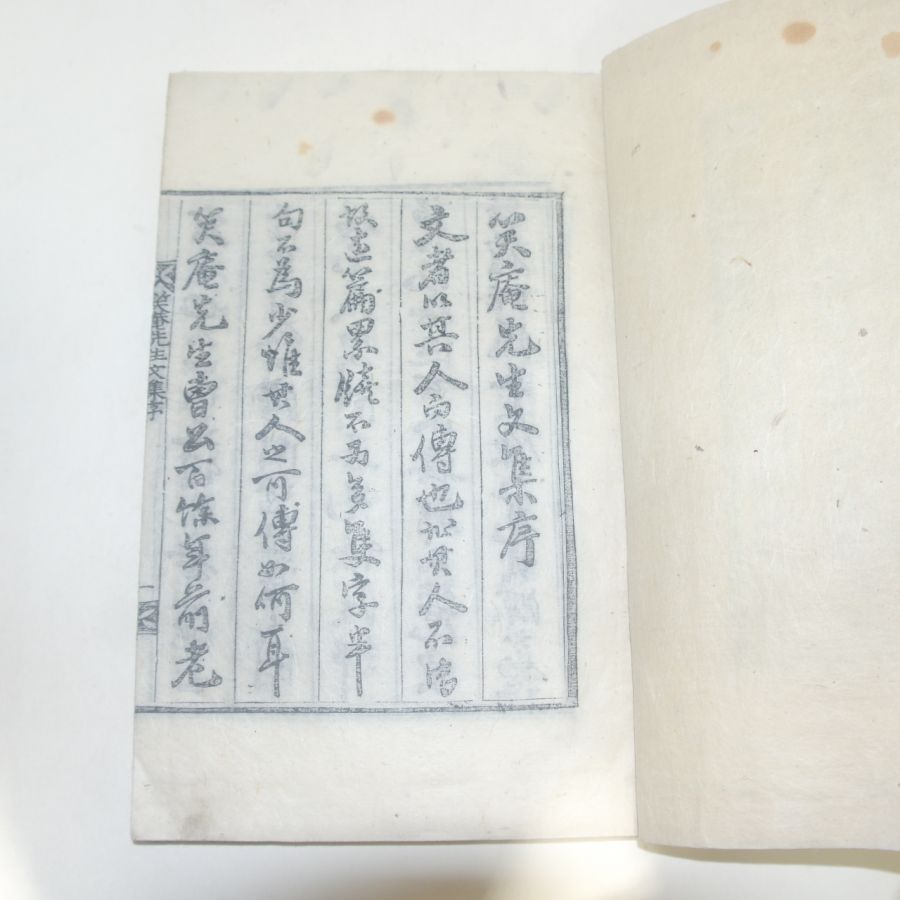 笑庵先生文集序
文者以其人而傳也非其人不傳
故連篇累牘不為多隻字半
句不為少惟其人之可傳如何耳
笑庵先生曺公百餘年前老
笑庵先生文集序
一